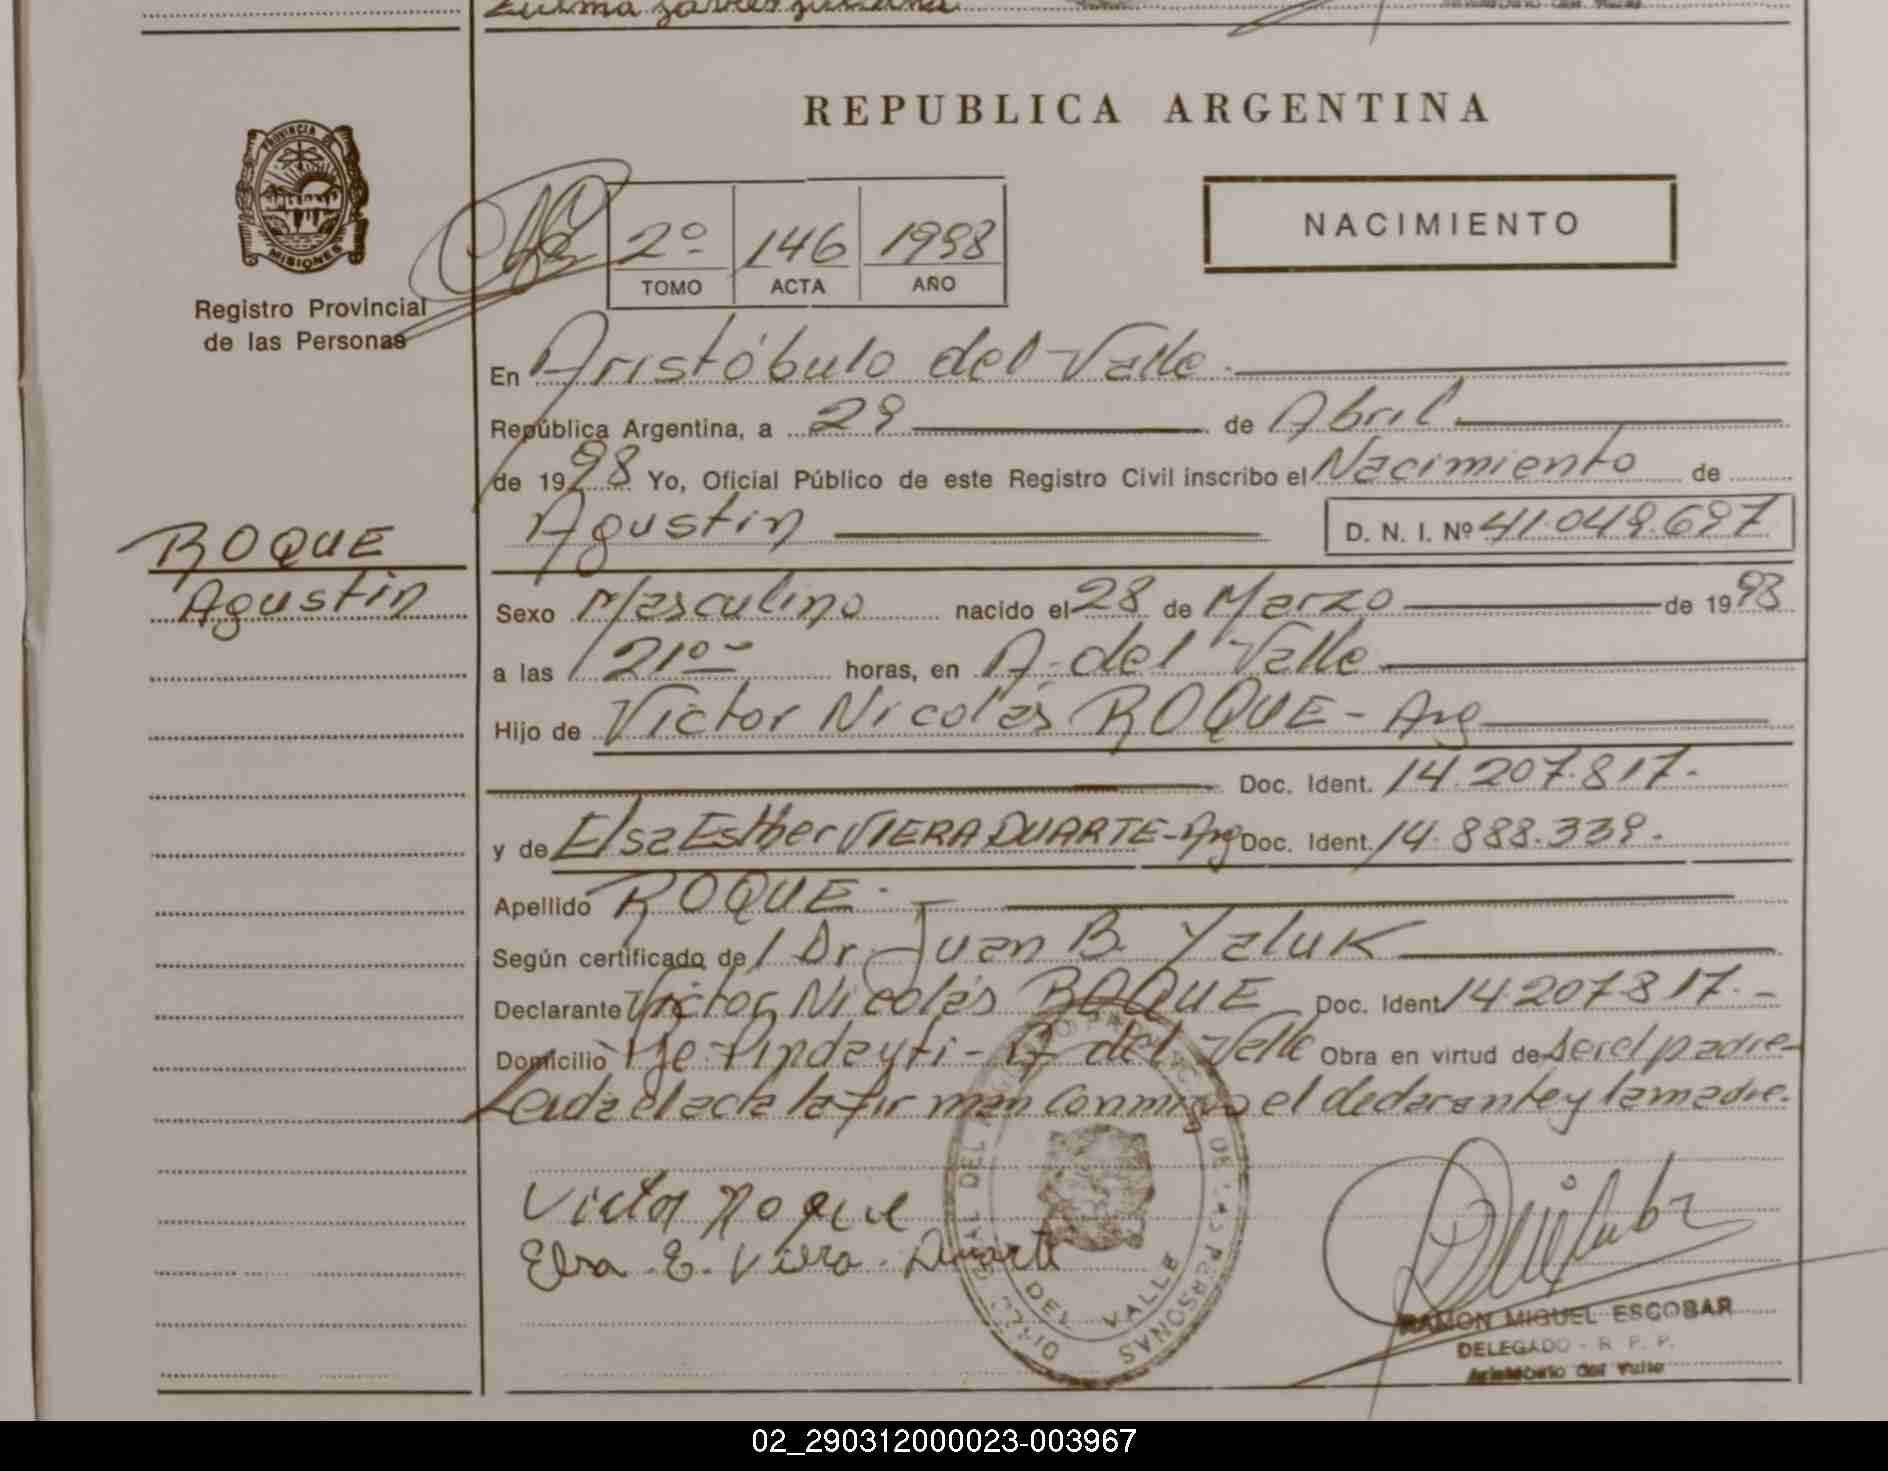 REPUBLICA ARGENTINA
PROVINCIA DE
MISIONES
Registro Provincial
de las Personas
2º 146 1998
TOMO ACTA AÑO
NACIMIENTO
En Aristóbulo del Valle.
República Argentina, a 29 de Abril
de 1998 Yo, Oficial Público de este Registro Civil inscribo el Nacimiento de
Agustin D. N. I. Nº 41.049.697
ROQUE
Agustin
Sexo Masculino nacido el 28 de Marzo de 1998
a las 21º horas, en A. del Valle
Hijo de Victor Nicolás ROQUE - Arg
Doc. Ident. 14.207.817.-
y de Elsa Esther VIERA DUARTE - Arg Doc. Ident. 14.888.339.-
Apellido ROQUE.-
Según certificado de Dr. Juan B. Yaluk
Declarante Victor Nicolás ROQUE Doc. Ident. 14.207.817.-
Domicilio Pje. Pindayti - A del Valle Obra en virtud de ser el padre-
Leida el acta la firman conmigo el declarante y la madre.
Victor Roque
Elsa. E. Viera. Duarte
DEL VALLE
RAMON MIGUEL ESCOBAR
DELEGADO - R. P. P.
Aristóbulo del Valle
02_290312000023-003967